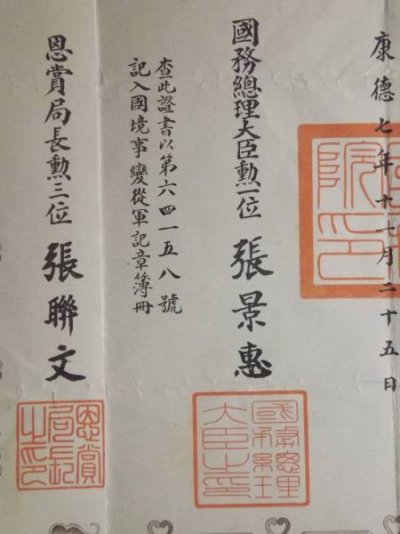 康德七年十一月二十五日
國務總理大臣勲一位 張景惠
查此證書以第六四一五八號
記入國境事變從軍記章簿冊
恩賞局長勲三位 張聯文
院印
國務總理
大臣之印
恩賞
局長
之印